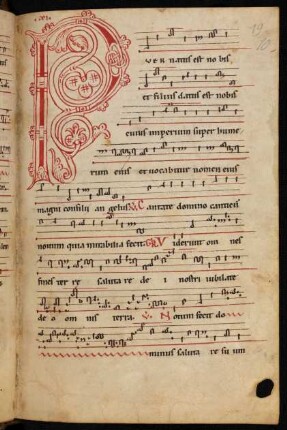 P UER natus est no bis
et filius datus est nobis
cuius imperium super hume
rum eius et vocabitur nomen eius
magni consilii an gelus V. Cantate domino canticū
nouum quia mirabilia fecit. GR V iderunt om nes
fines ter re saluta re de i nostri iubilate
de o om nis terra. V. N otum fecit do
minus saluta re su um